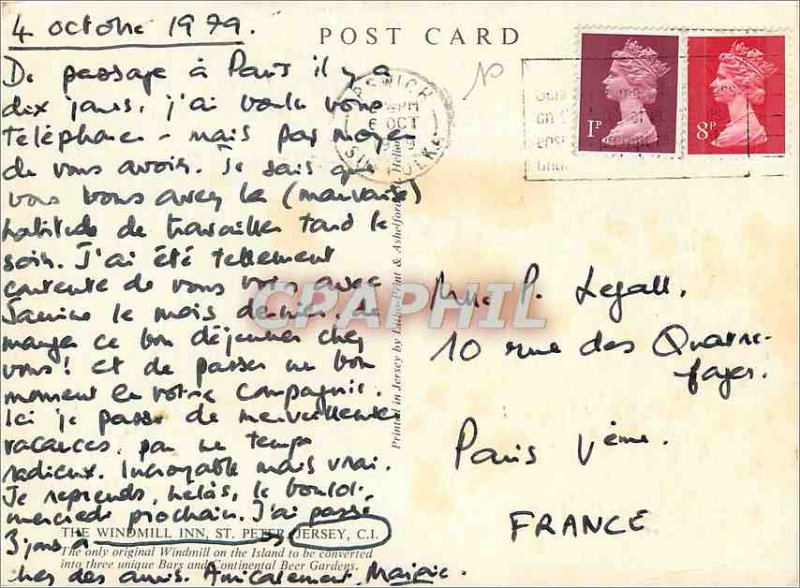 4 octobre 1979.
POST CARD
De passage à Paris il y a
dix jours, j'ai voulu vous
téléphoner - mais pas moyen
de vous avoir. Je sais que
vous vous avez la (mauvaise)
habitude de travailler tard le
soir. J'ai été tellement
contente de vous voir avec
Janine le mois dernier, de
manger ce bon déjeuner chez
vous! et de passer un bon
moment en votre compagnie.
Ici je passe de merveilleuses
vacances, par un temps
radieux. Incroyable mais vrai.
Je reprends, hélas, le boulot
mercredi prochain. J'ai passé
3 jours à
THE WINDMILL INN, ST. PETER, JERSEY, C.I.
The only original Windmill on the Island to be converted
into three unique Bars and Continental Beer Gardens.
chez des amis. Amicalement,
Printed in Jersey by
& Ashelford
IPSWICH
PM
6 OCT
SUFFOLK
1P
8P
Mlle P. Legall.
10 rue des Quatre-
fages.
Paris Vème.
FRANCE
CPAPHIL